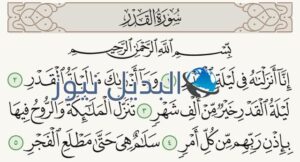 سُورَةُ الْقَدْرِ
بِسْمِ اللَّهِ الرَّحْمَٰنِ الرَّحِيمِ
إِنَّا أَنزَلْنَٰهُ فِى لَيْلَةِ وَمَآ أَدْرَىٰكَ مَا لَيْلَةُ ٱلْقَدْرِ ٢
البديل نيوز
لَيْلَةُ ٱلْقَدْرِ خَيْرٌ مِّنْ أَلْفِ شَهْرٍ ٣ تَنَزَّلُ ٱلْمَلَٰٓئِكَةُ وَٱلرُّوحُ فِيهَا
بِإِذْنِ رَبِّهِم مِّن كُلِّ أَمْرٍ ٤ سَلَٰمٌ هِىَ حَتَّىٰ مَطْلَعِ ٱلْفَجْرِ ٥